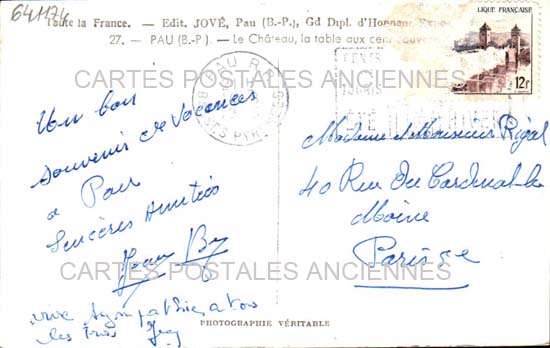 641174
Toute la France. — Edit. JOVÉ, Pau (B.-P.), Gd Dipl. d'Honneur Expos
27. - PAU (B.-P.) - Le Château, la table aux cent couverts
LIQUE FRANÇAISE
12F
PAU R.P.
BSES PYRÉNÉES
CARTES POSTALES ANCIENNES
Un bon
souvenir de vacances
à Pau
Sincères Amitiés
vive sympathie à tous
les trois
Madame et Monsieur Rigal
40 Rue du Cardinal-le
Moine
Paris 5e
CARTES POSTALES ANCIENNES
PHOTOGRAPHIE VÉRITABLE